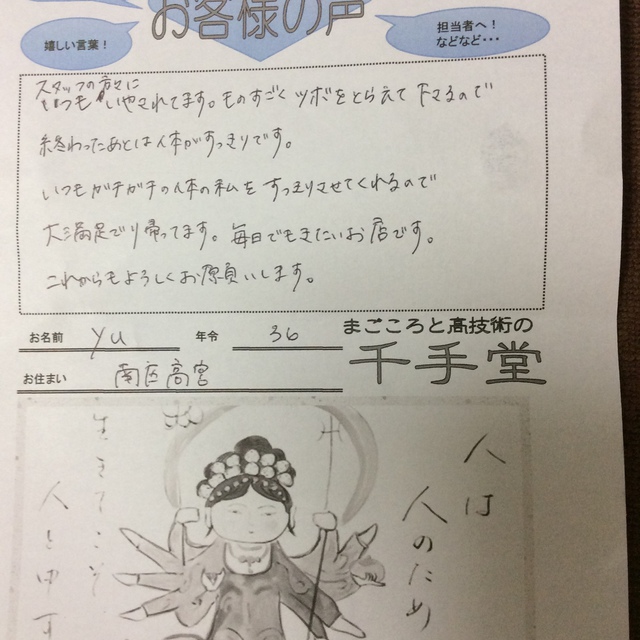 お客様の声
嬉しい言葉!
担当者へ!
などなど・・・
スタッフの方々に
いつも いやされてます。ものすごくツボをとらえて下さるので
終わったあとは体がすっきりです。
いつもガチガチの体の私をすっきりさせてくれるので
大満足で帰ってます。毎日でもきたいお店です。
これからもよろしくお願いします。
お名前 yu 年令 36
お住まい 南区高宮
まごころと高技術の
千手堂
人は
人のため
生きてこそ
人と申す